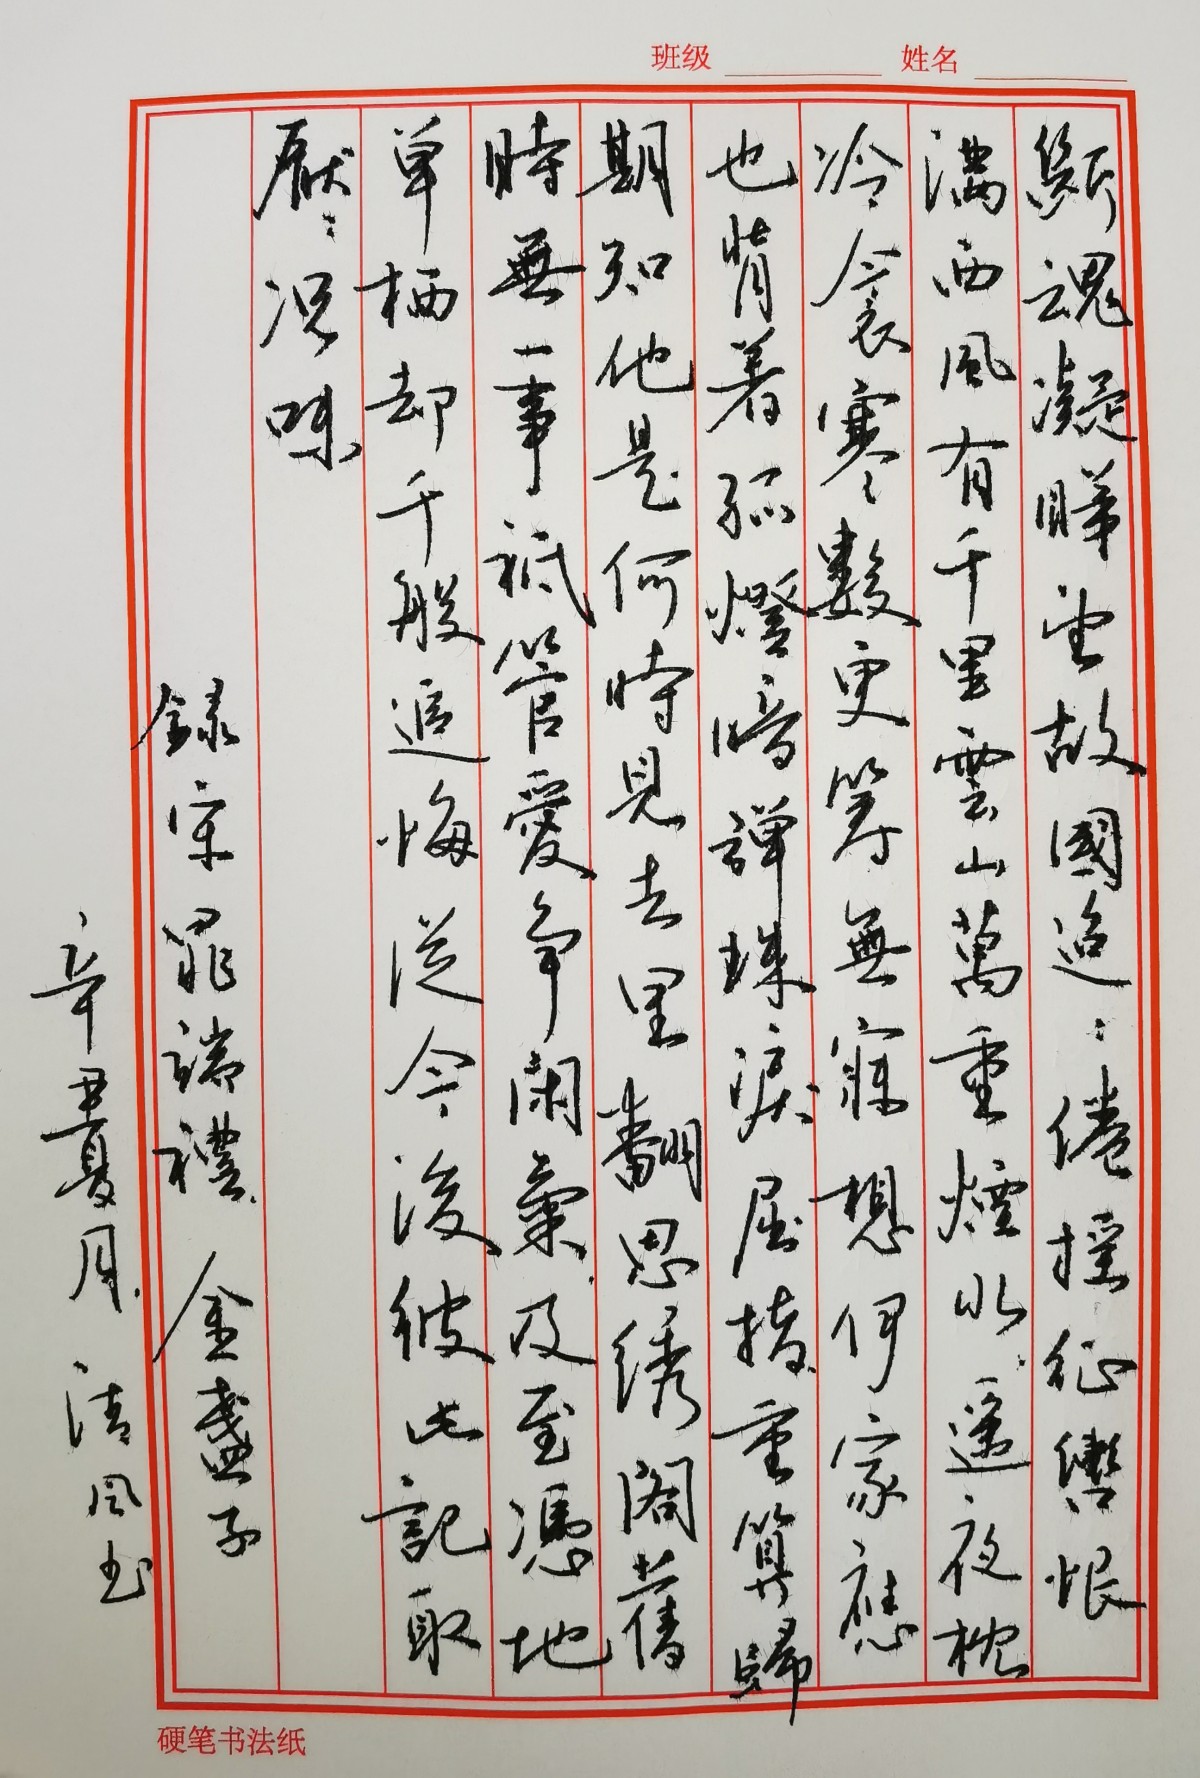 班级 姓名
斷魂凝睇望故國迢〻倦摇征轡恨
满西風有千里雲山萬重煙水遥夜枕
冷衾寒數更筹無寐想伊家應
也背着孤燈暗彈珠淚屈指重算歸
期知他是何時見去里翻思綉閣舊
時無一事祗管愛争閑氣及至憑地
单栖却千般追悔從今後彼此記取
厭〻况味
録宋晁端禮 金盏子
辛丑夏月 清风书
硬笔书法纸